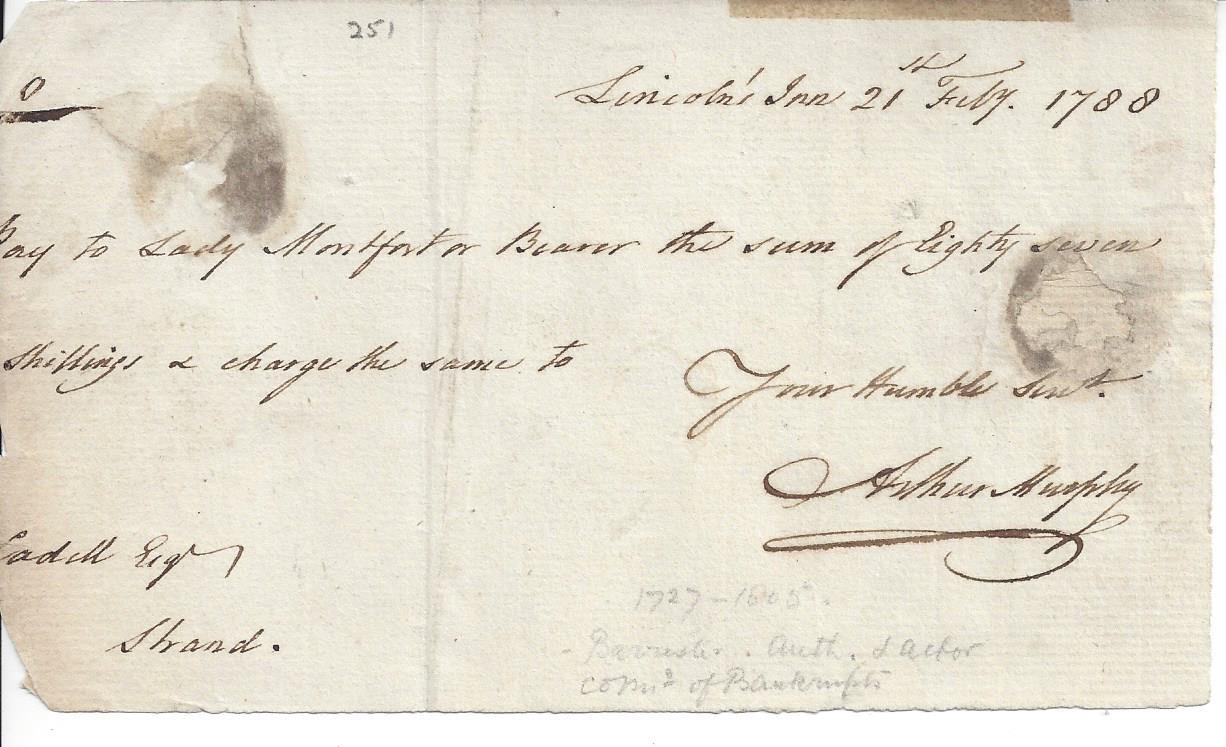 251
0
Lincoln's Inn 21st Feby. 1788
Pay to Lady Montfort or Bearer the sum of Eighty seven
Shillings & charge the same to
Your Humble Servt.
Arthur Murphy
Cadell Esqr
Strand.
1727-1805.
Barrister. Auth. & actor
Comr of Bankrupts